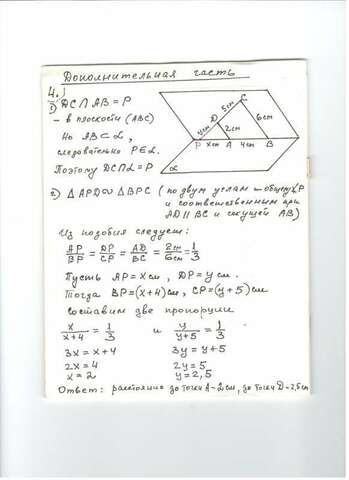 Дополнительная часть
4.)
1) DC∩AB=P
– в плоскости (ABC)
Но AB⊂α,
следовательно P∈α.
Поэтому DC∩α=P
C
5см
D
yсм
2см
6см
P xсм A 4см B
α
2) △APD∽△BPC (по двум углам – общему P
и соответственным при
AD∥BC и секущей AB)
Из подобия следует:
AP/BP = DP/CP = AD/BC = 2см/6см = 1/3
Пусть AP=xсм, DP=yсм.
Тогда BP=(x+4)см, CP=(y+5)см
Составим две пропорции
x/x+4 = 1/3 и y/y+5 = 1/3
3x=x+4 3y=y+5
2x=4 2y=5
x=2 y=2,5
Ответ: расстояние до точки A–2см, до точки D–2,5см